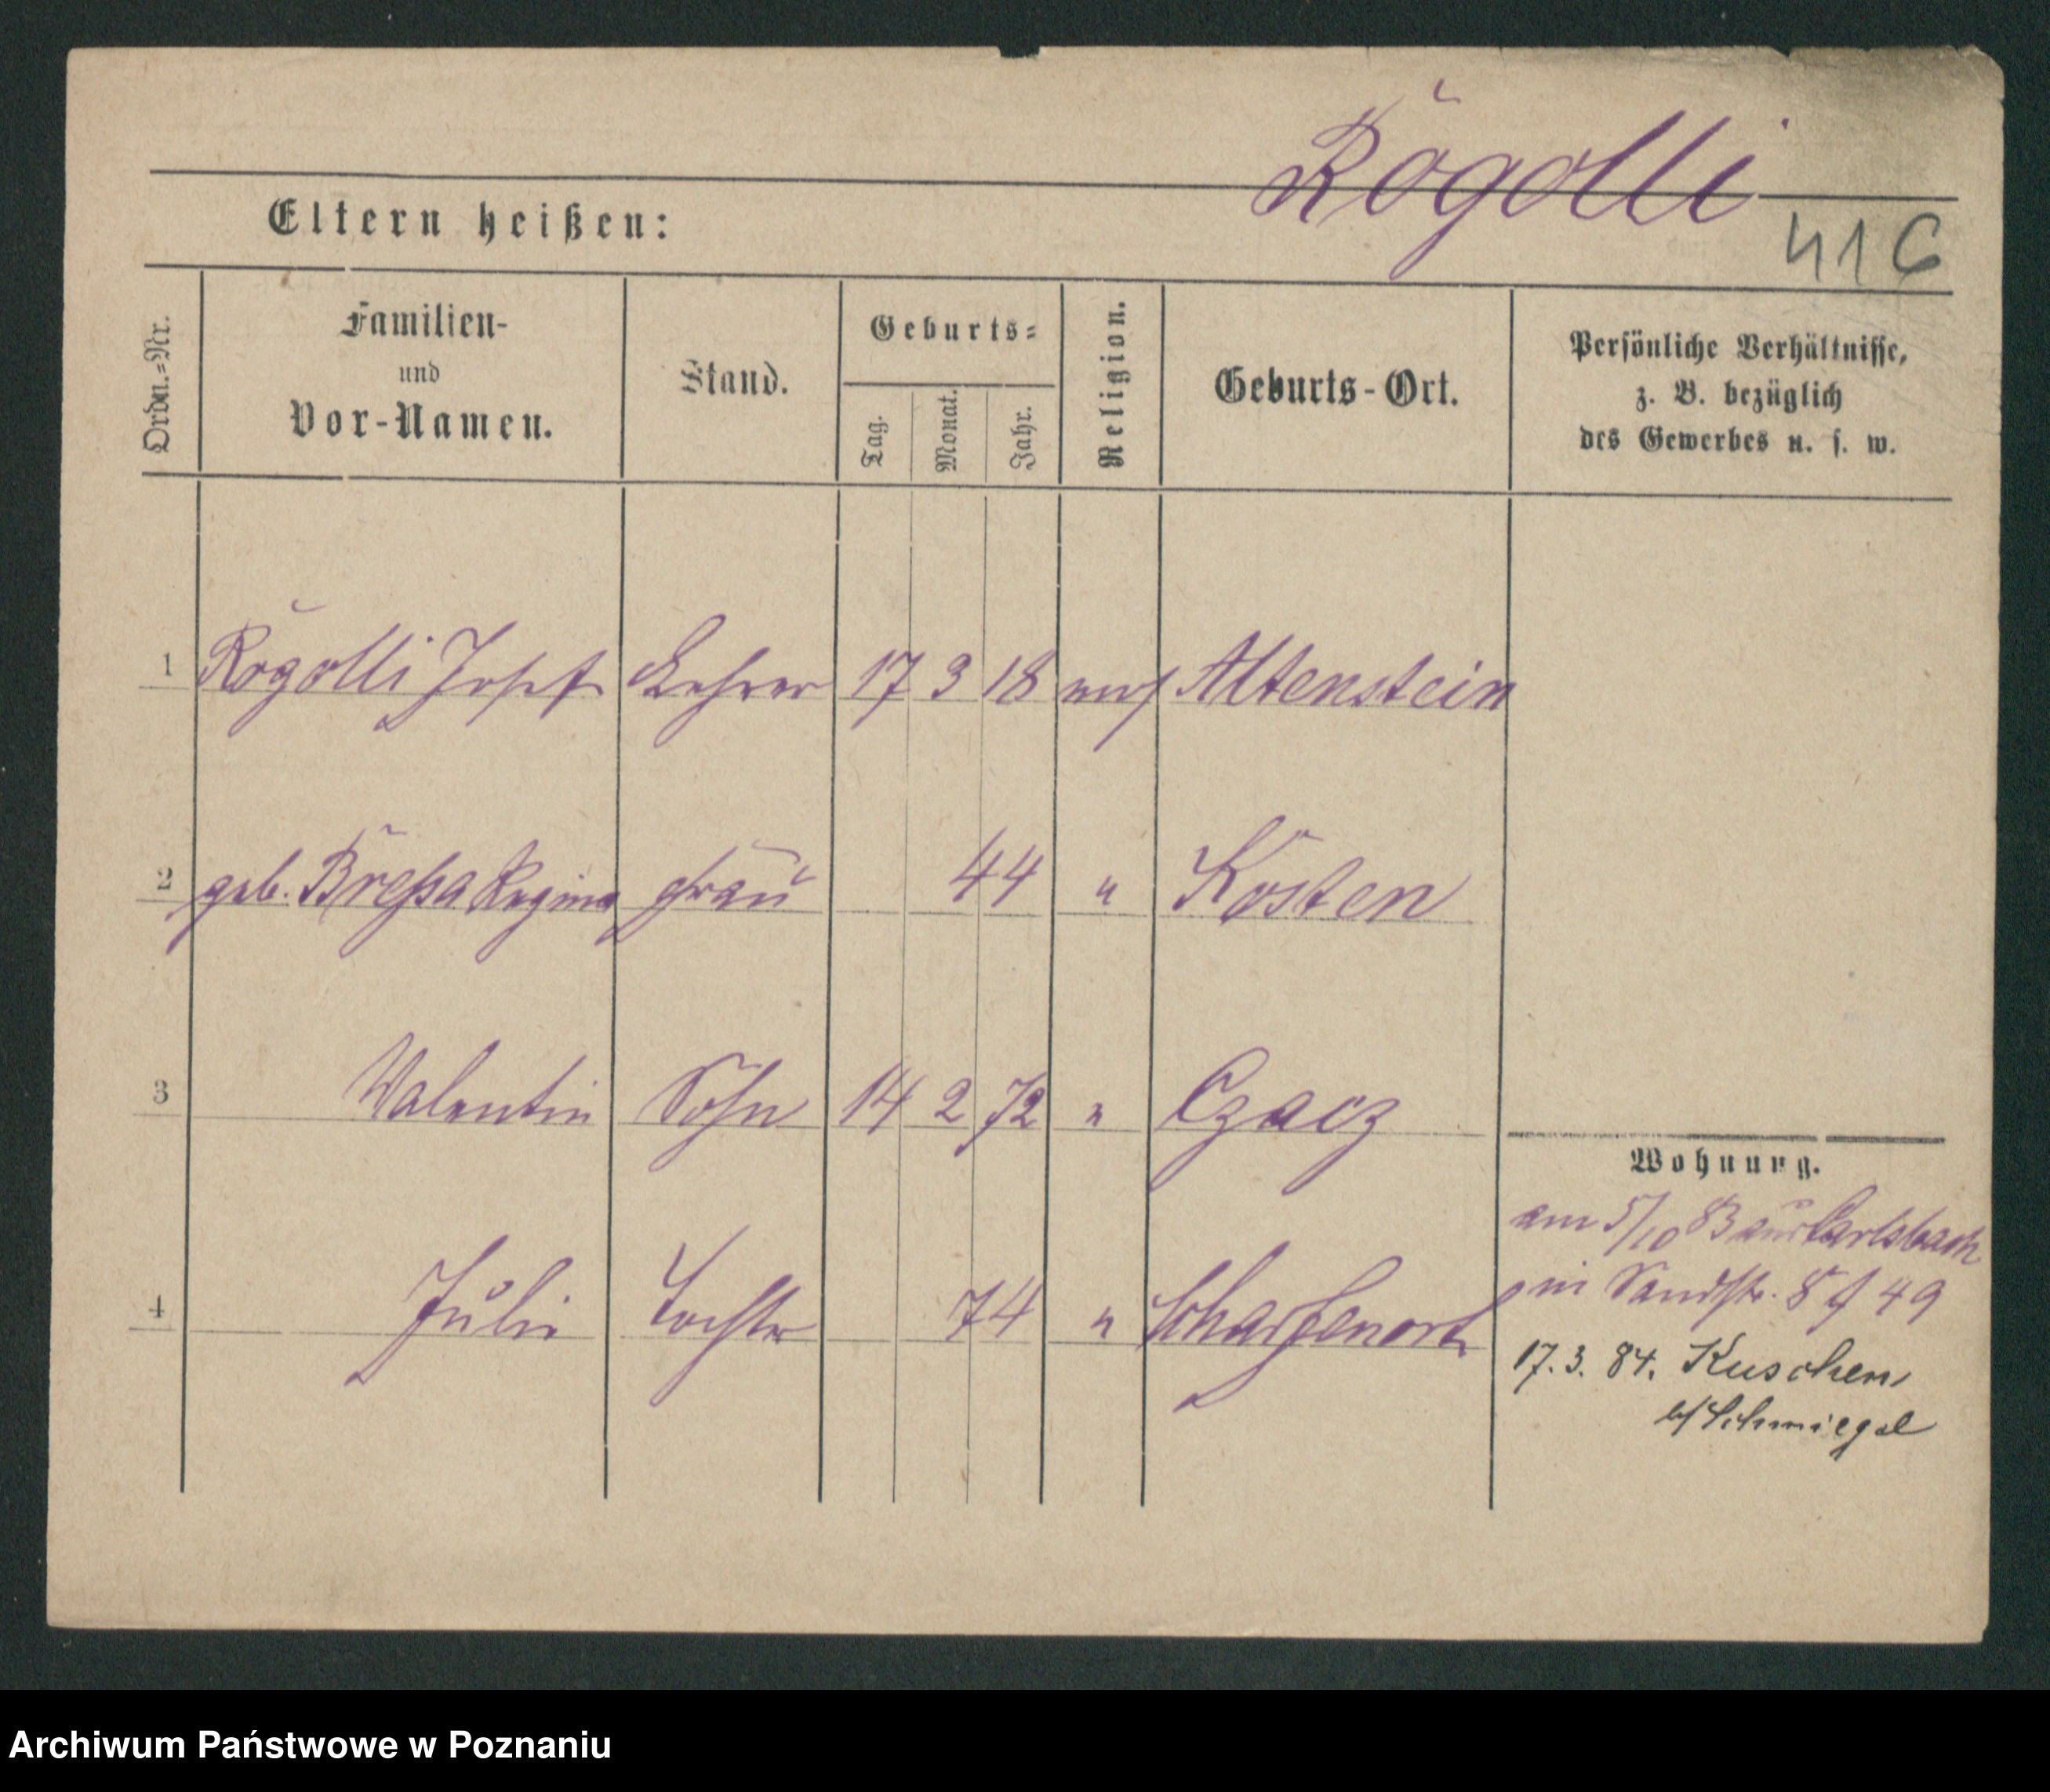 Rogolli
416
Eltern heißen:
Ordn.=Nr.
Familien-
und
Vor-Namen.
Stand.
Geburts=
Tag.
Monat.
Jahr.
Religion.
Geburts-Ort.
Persönliche Verhältnisse,
z. B. bezüglich
des Gewerbes u. s. w.
1 Rogolli Josef Lehrer 17 3 18 Altenstein
2 geb. Breßa Regina Frau 44 " Kosten
3 Valentin Sohn 14 2 72 " Czacz
4 Julie Tochter 74 " Scharfenort
Wohnung.
am 5/10 83 aus Carlsbach
in Sandstr. 8 49
17.3.84. Kuschen
b/Schmiegel
Archiwum Państwowe w Poznaniu